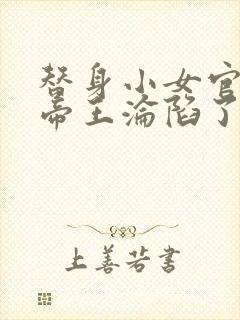 替身小女官
帝王淪陷了
上善若書